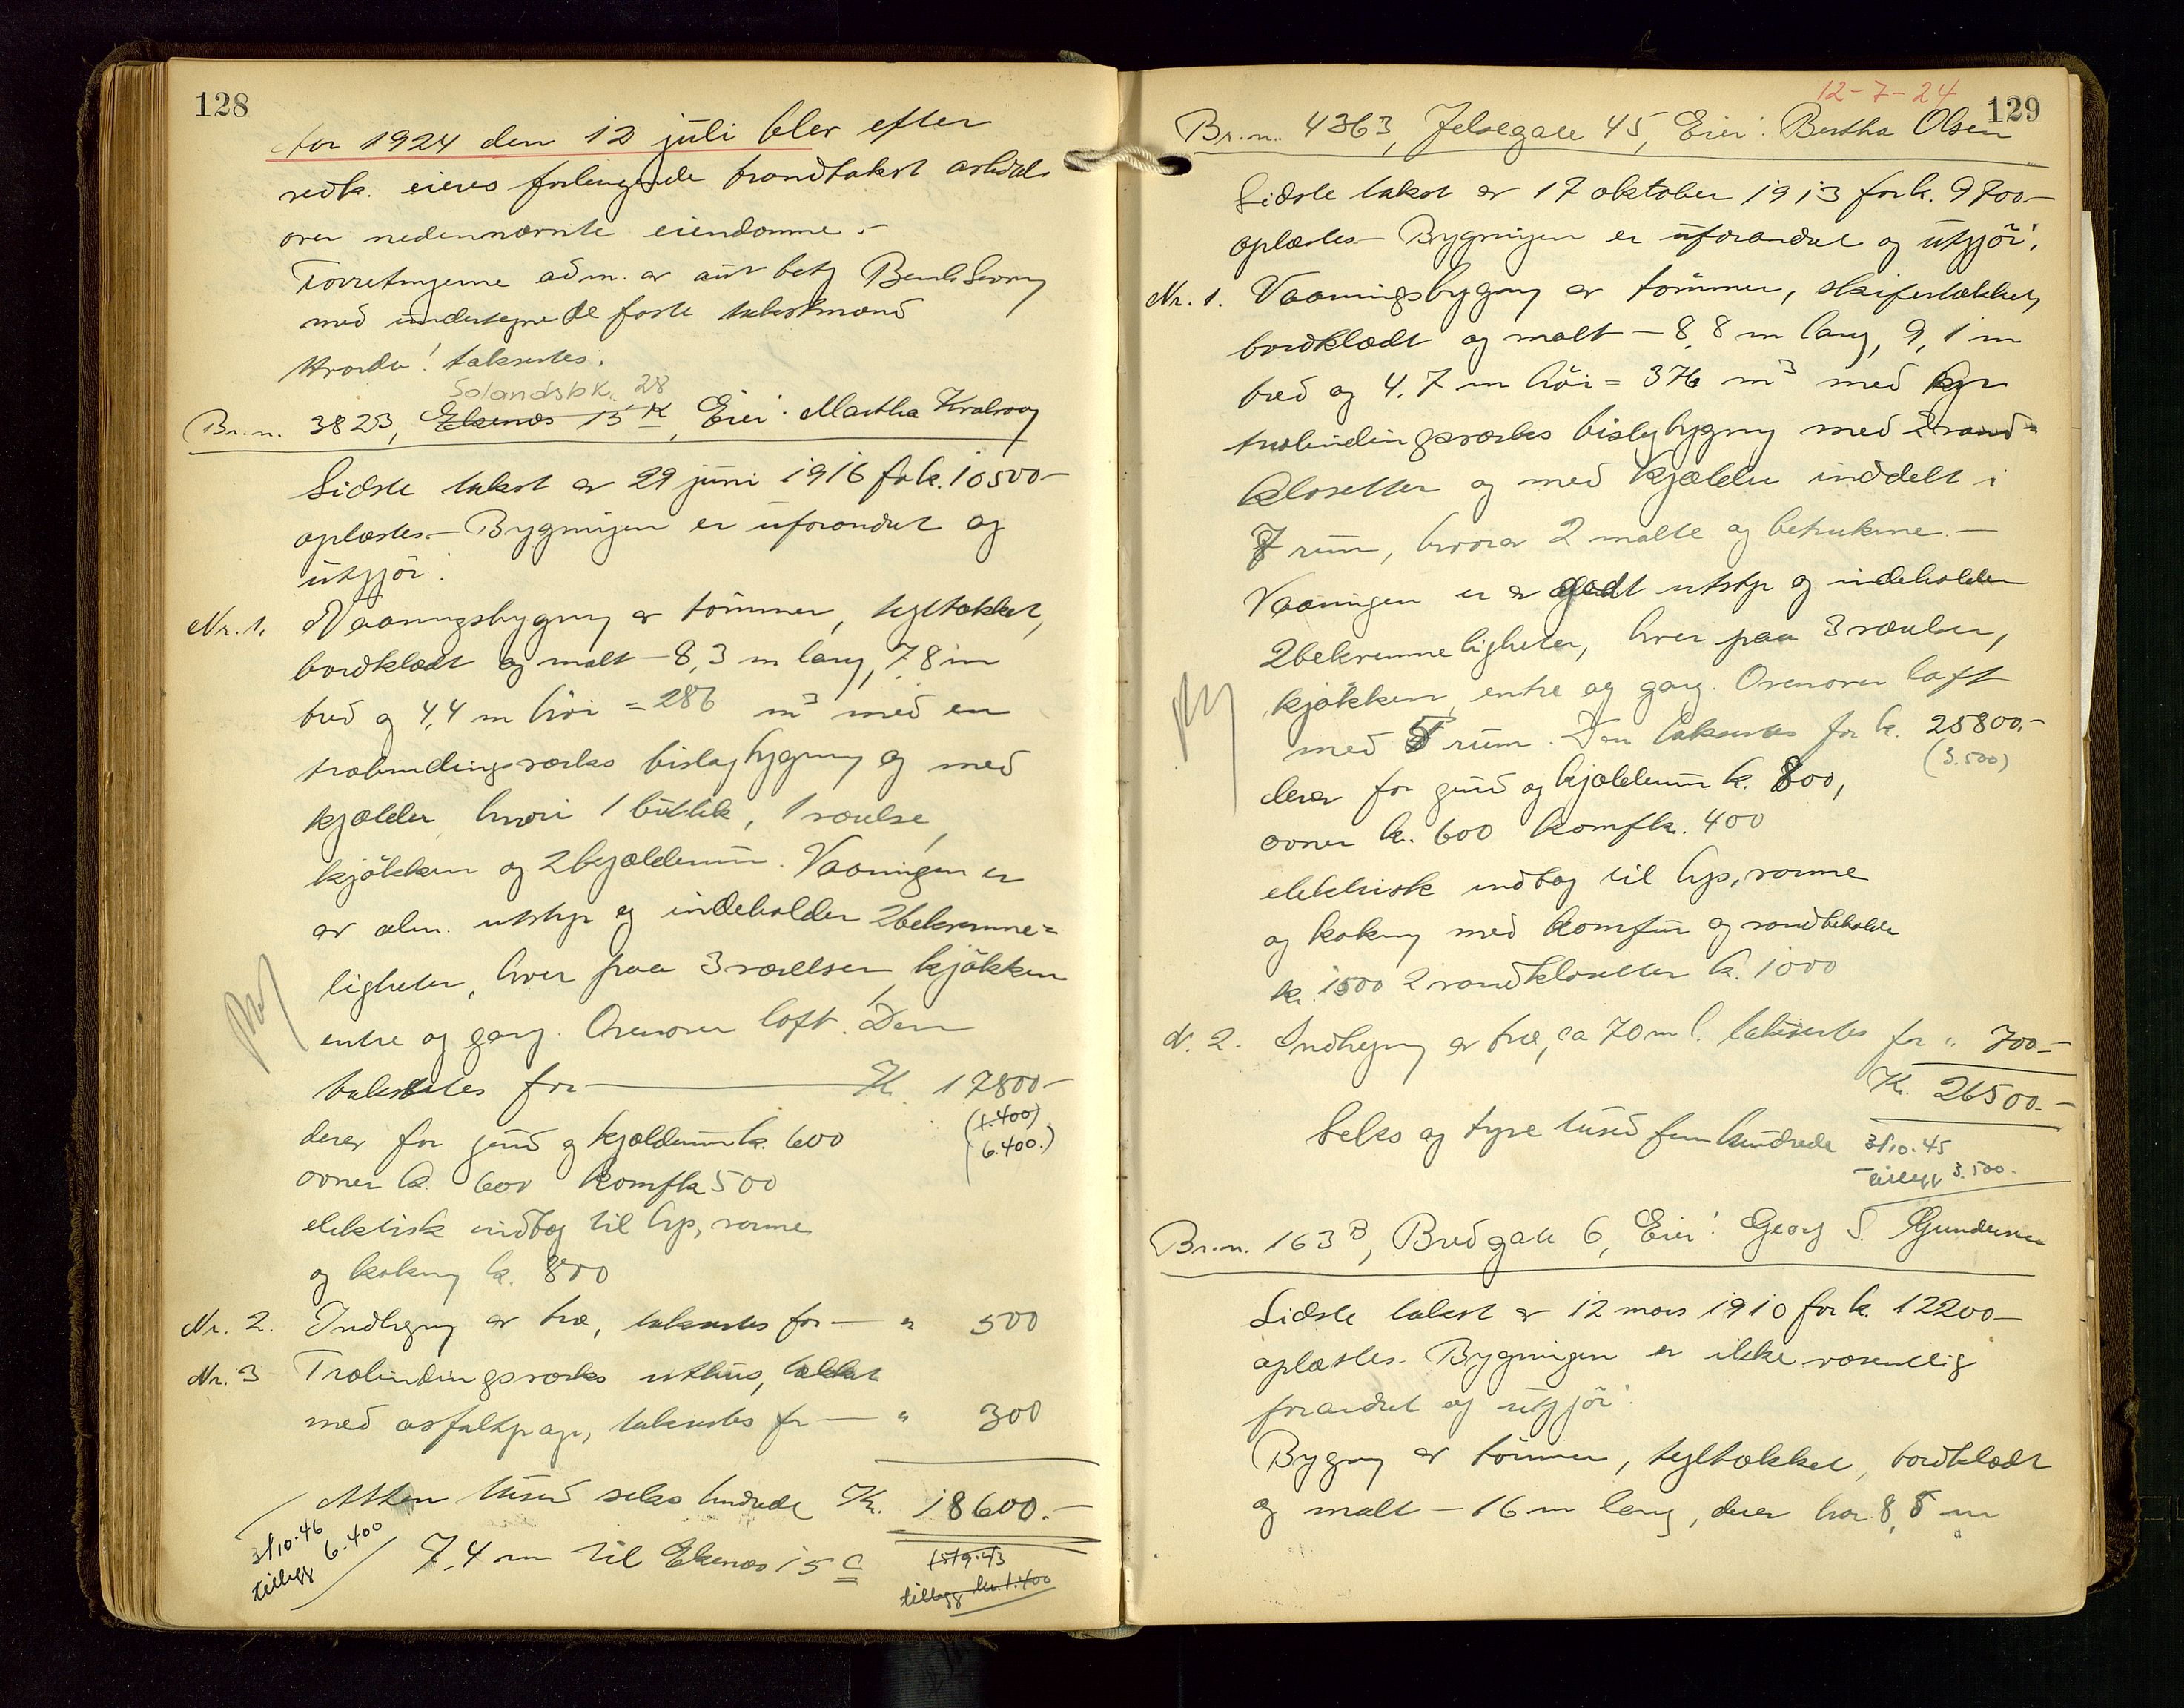 128
Aar 1924 den 12 juli blev efter
vedk. eieres forlangende brandtakst avholdt
over nedennævnte eiendomme.-
Forretningerne adm. av
med undertegnede faste takstmænd
Hvorda! takseredes.
Solandsbk. 28
Br.n. 3823, Ekenæs 15 K, Eier: Martha Kvalvaag
Sidste takst av 29 juni 1916 for k. 10500-
oplæstes- Bygningen er uforandret og
utgjör:
Nr. 1. Vaaningsbygning av tömmer, tegltækket,
bordklædt og malt - 8,3 m lang, 7,8 m
bred og 4,4 m höi = 286 m³ med en
træbindingsværks bislagbygning og med
kjælder hvori 1 butik, 1 værelse,
kjökken og 2 kjælderrum. Vaaningen er
av alm. utstyr og indeholder 2 bekvemme=
ligheter, hver paa 3 værelser, kjökken
entre og gang. Ovenover loft. Den
takseredes for — K. 17800-
(1.400)
derav for grund og kjælderrum k. 600
(6.400.)
ovner k. 600 komf k 500
elektrisk indlæg til lys, varme
og kokning k. 800
Nr. 2. Indhegning av træ, takseredes for — " 500
Nr. 3 Træbindingsværks uthus, tækket
med asfaltpap, takseredes for — " 300
Atten tusind seks hundrede Kr. 18600.-
3/10.46
tillegg 6.400
7,4 m til Ekenæs 15 C
15/9.43
tillegg kr. 1.400
12-7-24
129
Br.n. 4363, Jelsegate 45, Eier: Bertha Olsen
Sidste takst av 17 oktober 1913 for k. 9700-
oplæstes- Bygningen er uforandret og utgjör:
Nr. 1. Vaaningsbygning av tömmer, skifertækket,
bordklædt og malt - 8,8 m lang, 9,1 m
bred og 4,7 m höi = 376 m³ med
træbindingsværks bislagbygning med 2 vand=
klosetter og med kjælder inddelt i
7 rum, hvorav 2 malte og betrukne.-
Vaaningen er av godt utstyr og indeholder
2 bekvemmeligheter, hver paa 3 værelser,
kjökken, entre og gang. Ovenover loft
med 5 rum. Den takseredes for k. 25800.-
(3.500)
derav for grund og kjælderrum k. 800,
ovner k. 600 komf k. 400
elektrisk indlæg til lys, varme
og kokning med komfur og vandbeholder
k. 1500 2 vandklosetter k. 1000
N. 2. Indhegning av træ, ca 70 m l. takseredes for " 700.-
Kr. 26500.-
Seks og tyve tusind fem hundrede
3/10.45
tillegg 3.500.-
Br.n. 163 B, Bredgate 6, Eier: Georg S. Gundersen
Sidste takst av 12 mars 1910 for k. 12200-
oplæstes- Bygningen er ikke væsentlig
forandret og utgjör:
Bygning av tömmer, tegltækket, bordklædt
og malt - 16 m lang, derav har 8,5 m